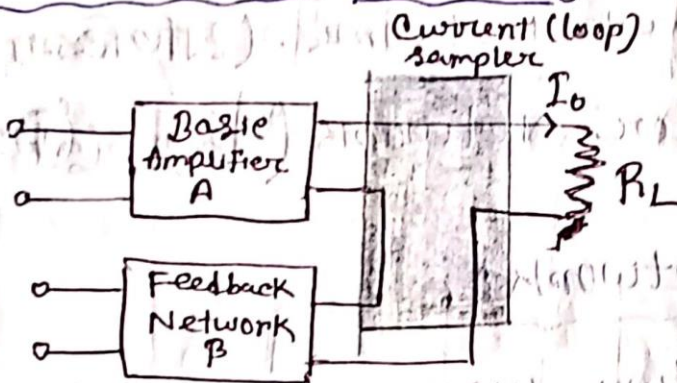 Current (loop)
sampler
Basic
Amplifier
A
I₀
R_L
Feedback
Network
β